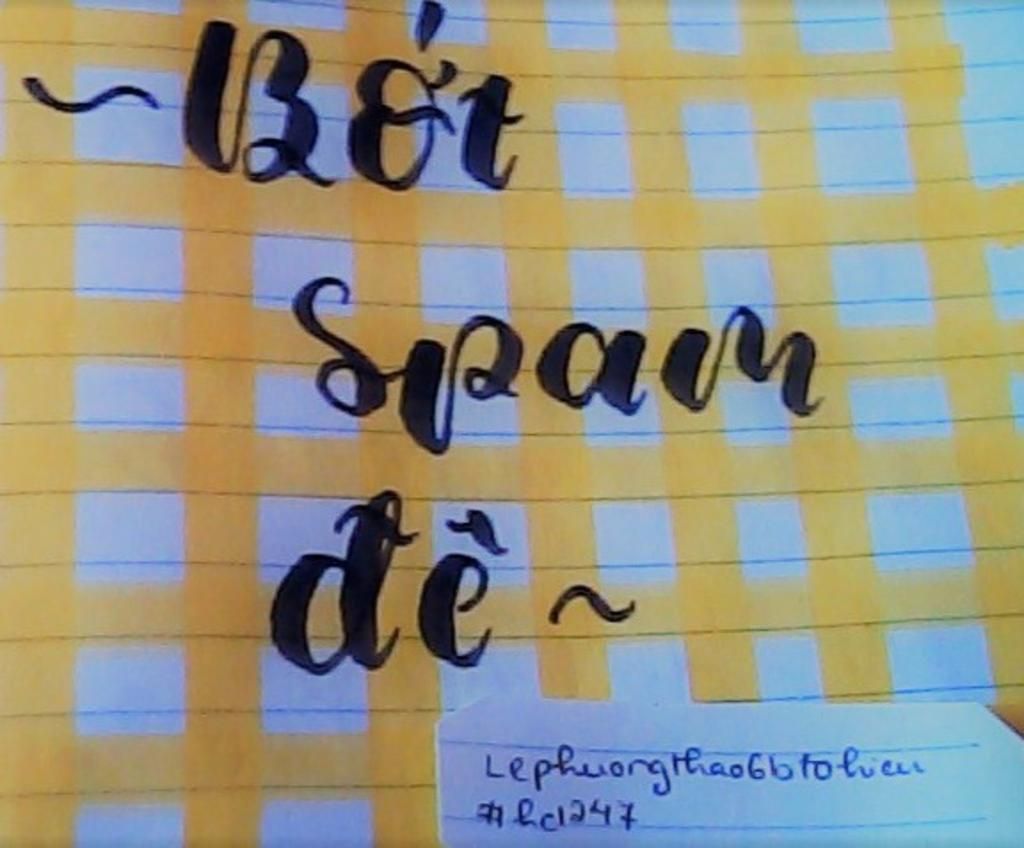 ~Bớt
spam
đề~
Lephuongthao6btohieu
#hc1247